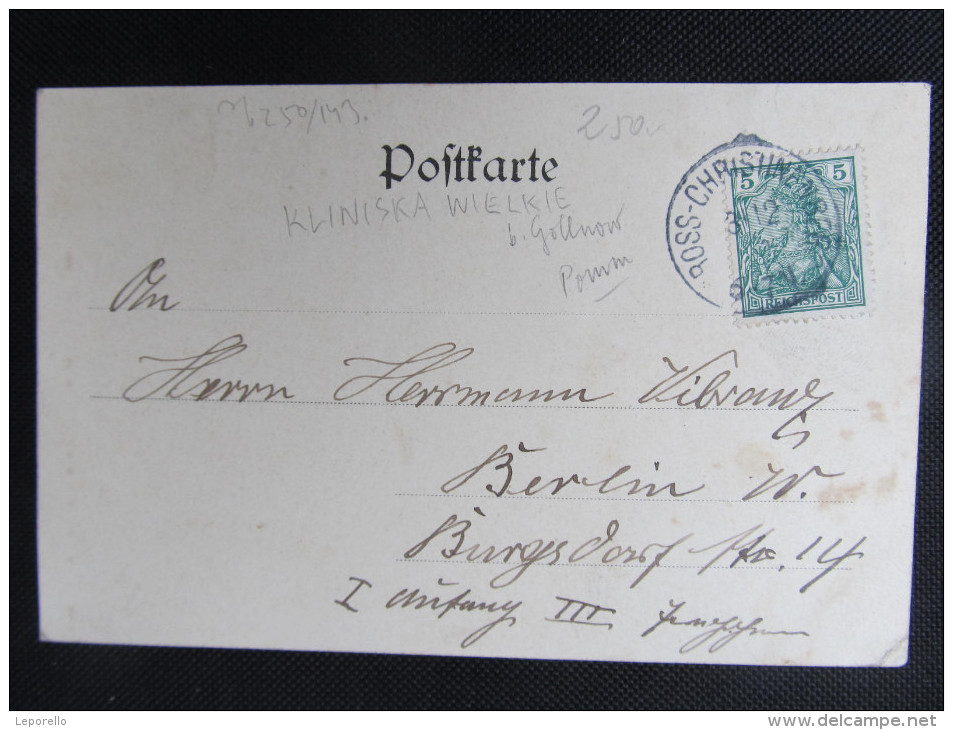 250/143.
250.-
Postkarte
KLINISKA WIELKIE
b. Gollnow
Pomm
ROSS-CHRISTINENBERG
8 12
5 5
REICHSPOST
An
Herrn Herrmann Vibranz
Berlin W.
Burgsdorf Str. 14
I Aufang III
Leporello
www.delcampe.net